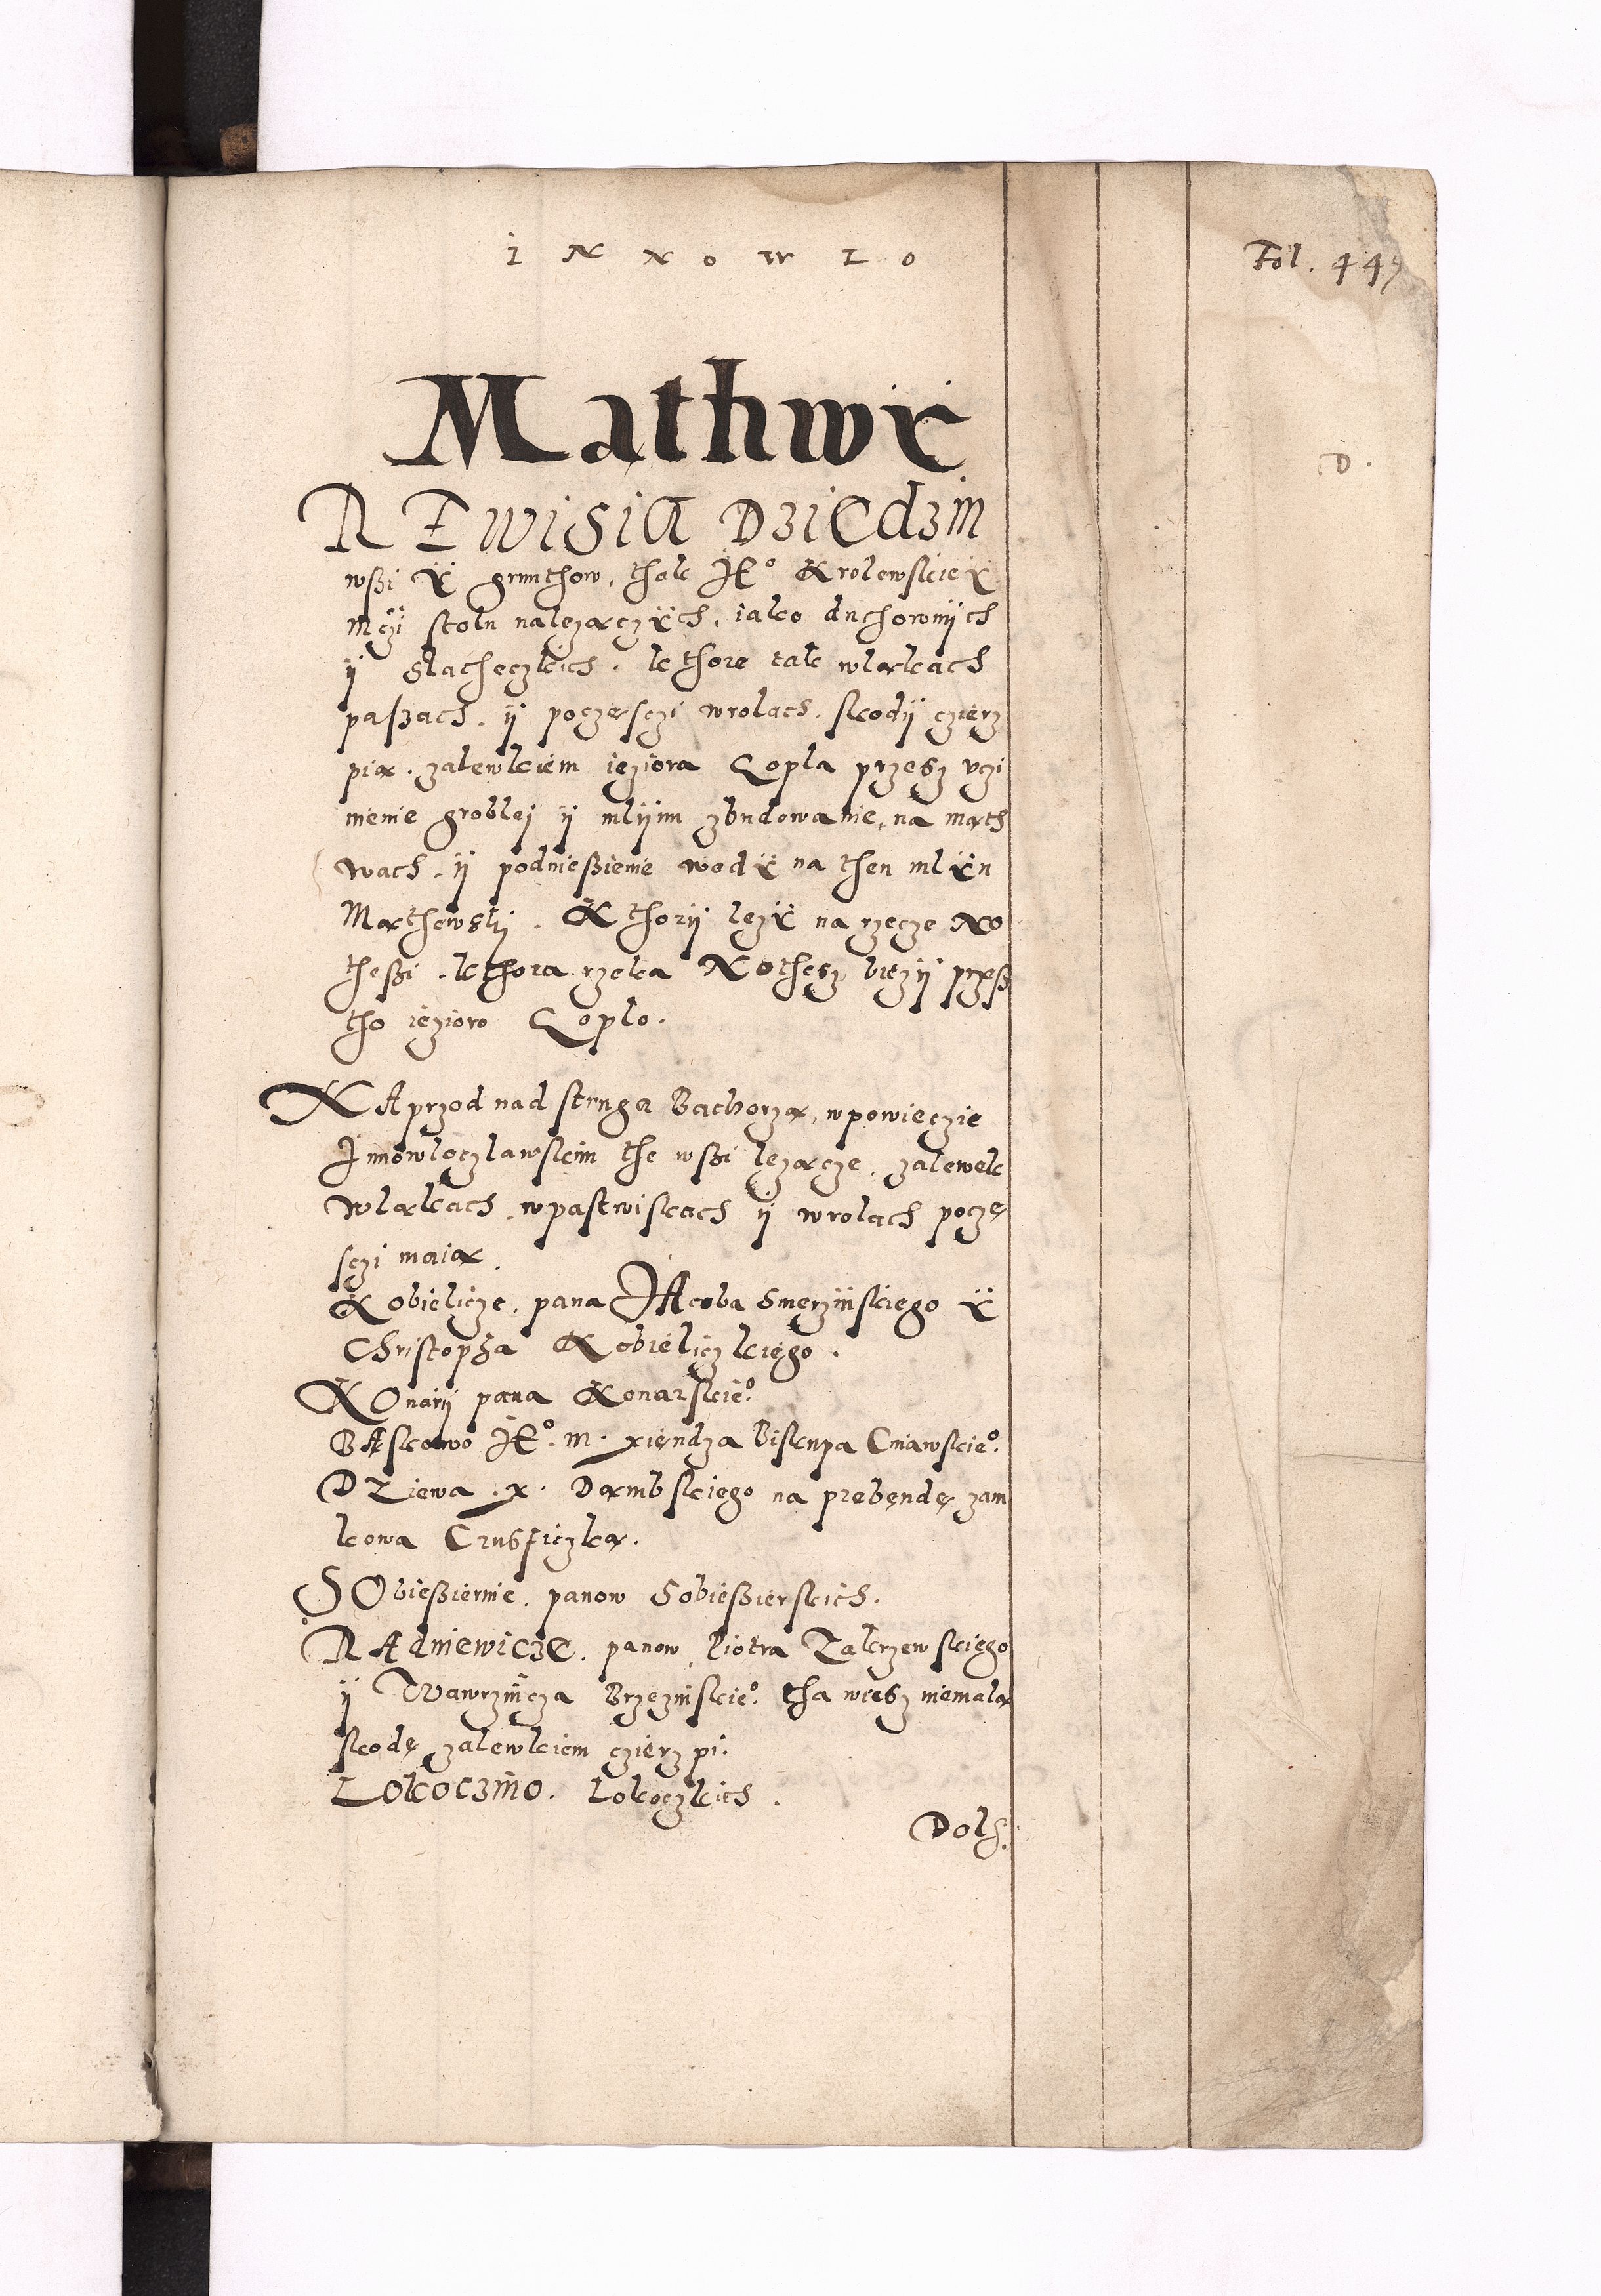 I N N O W L O
Fol. 445
Mathwÿ
D.
REwisia Dziedzin
wßi ÿ grunthow, thak JEº Krolewskieÿ
mczi stolu należączÿch, iako duchownÿch
ÿ slacheczkich. kthore tak włąkach
paßach. ÿ poczęsczi wrolach. skodÿ czierz
pią. zalewkiem ieziora Gopla przesz vczi
nienie groblej ÿ mlÿnu zbudowanie, na math
wach. ÿ podnießienie wodÿ na then mlÿn
Mathewskj. Kthorÿ lezÿ na rzecze No
theßi. kthora rzeka Nothesz bieżÿ przeß
tho iezioro Goplo.
NAprzod nad strugą Bachorzą, wpowieczie
Jnnowloczlawskim the wßi leżącze, zalewek
wląkach, wpastwiskach ÿ wrolach poczę
sczi maią.
Kobielicze. pana JAcoba Smerzinskiego ÿ
Christopha Kobieliczkiego.
KOnarÿ pana Konarskieº.
BAskowo JEº. m. xiędza Biskupa Cuiawskieº.
DZiewa. x. Dąmbskiego na prebendę zam
kową Crusficzką.
SObießiernie. panow Sobießierskich.
RAdniewicze. panow Piotra Zakrzewskiego
ÿ Wawrzincza Brzezinskieº. tha wiesz niemalą
skodę zalewkiem czierzpi.
Lokoczino. Lokoczkich.
Dols.